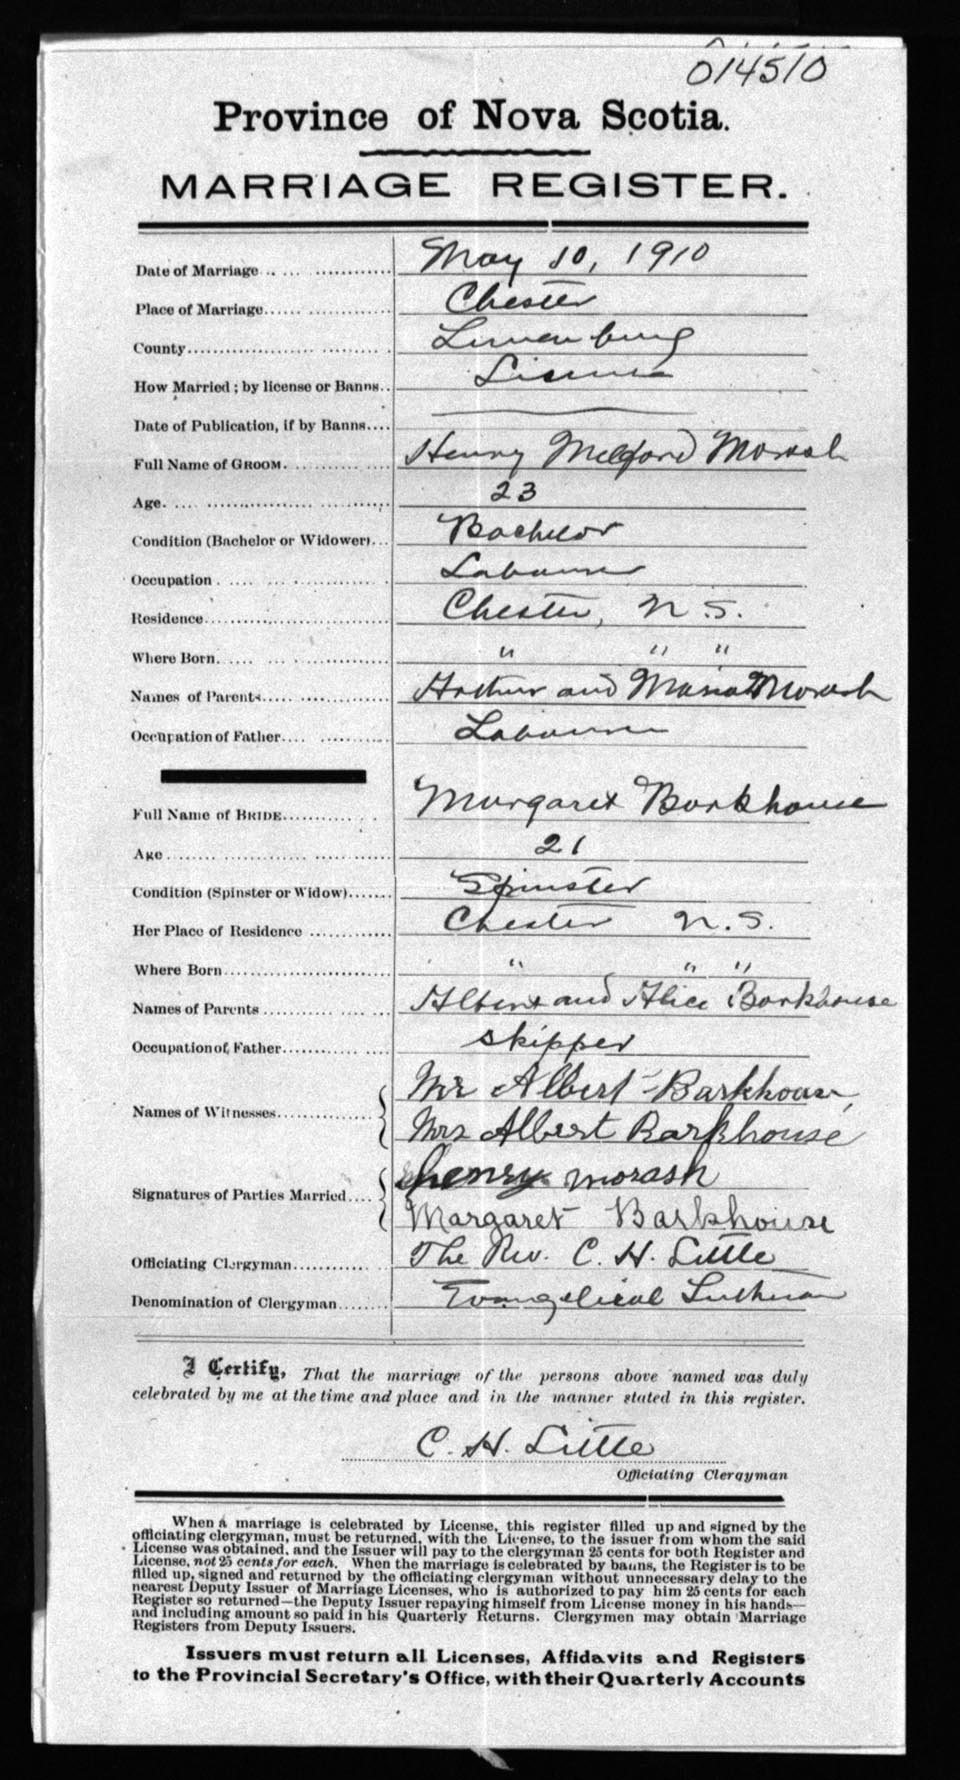 014510
Province of Nova Scotia.
MARRIAGE REGISTER.
Date of Marriage May 10, 1910
Place of Marriage Chester
County Lunenburg
How Married; by license or Banns License
Date of Publication, if by Banns
Full Name of GROOM Henry Melford Morash
Age 23
Condition (Bachelor or Widower) Bachelor
Occupation Labourer
Residence Chester, N.S.
Where Born " " "
Names of Parents Arthur and Maria Morash
Occupation of Father Labourer
Full Name of BRIDE Margaret Barkhouse
Age 21
Condition (Spinster or Widow) Spinster
Her Place of Residence Chester N.S.
Where Born " " "
Names of Parents Albert and Alice Barkhouse
Occupation of Father skipper
Names of Witnesses Mr Albert Barkhouse
Mrs Albert Barkhouse
Signatures of Parties Married Henry Morash
Margaret Barkhouse
Officiating Clergyman The Rev. C. H. Little
Denomination of Clergyman Evangelical Lutheran
I Certify, That the marriage of the persons above named was duly
celebrated by me at the time and place and in the manner stated in this register.
C. H. Little
Officiating Clergyman
When a marriage is celebrated by License, this register filled up and signed by the
officiating clergyman, must be returned, with the License, to the issuer from whom the said
License was obtained, and the Issuer will pay to the clergyman 25 cents for both Register and
License, not 25 cents for each. When the marriage is celebrated by banns, the Register is to be
filled up, signed and returned by the officiating clergyman without unnecessary delay to the
nearest Deputy Issuer of Marriage Licenses, who is authorized to pay him 25 cents for each
Register so returned—the Deputy Issuer repaying himself from License money in his hands—
and including amount so paid in his Quarterly Returns. Clergymen may obtain Marriage
Registers from Deputy Issuers.
Issuers must return all Licenses, Affidavits and Registers
to the Provincial Secretary's Office, with their Quarterly Accounts